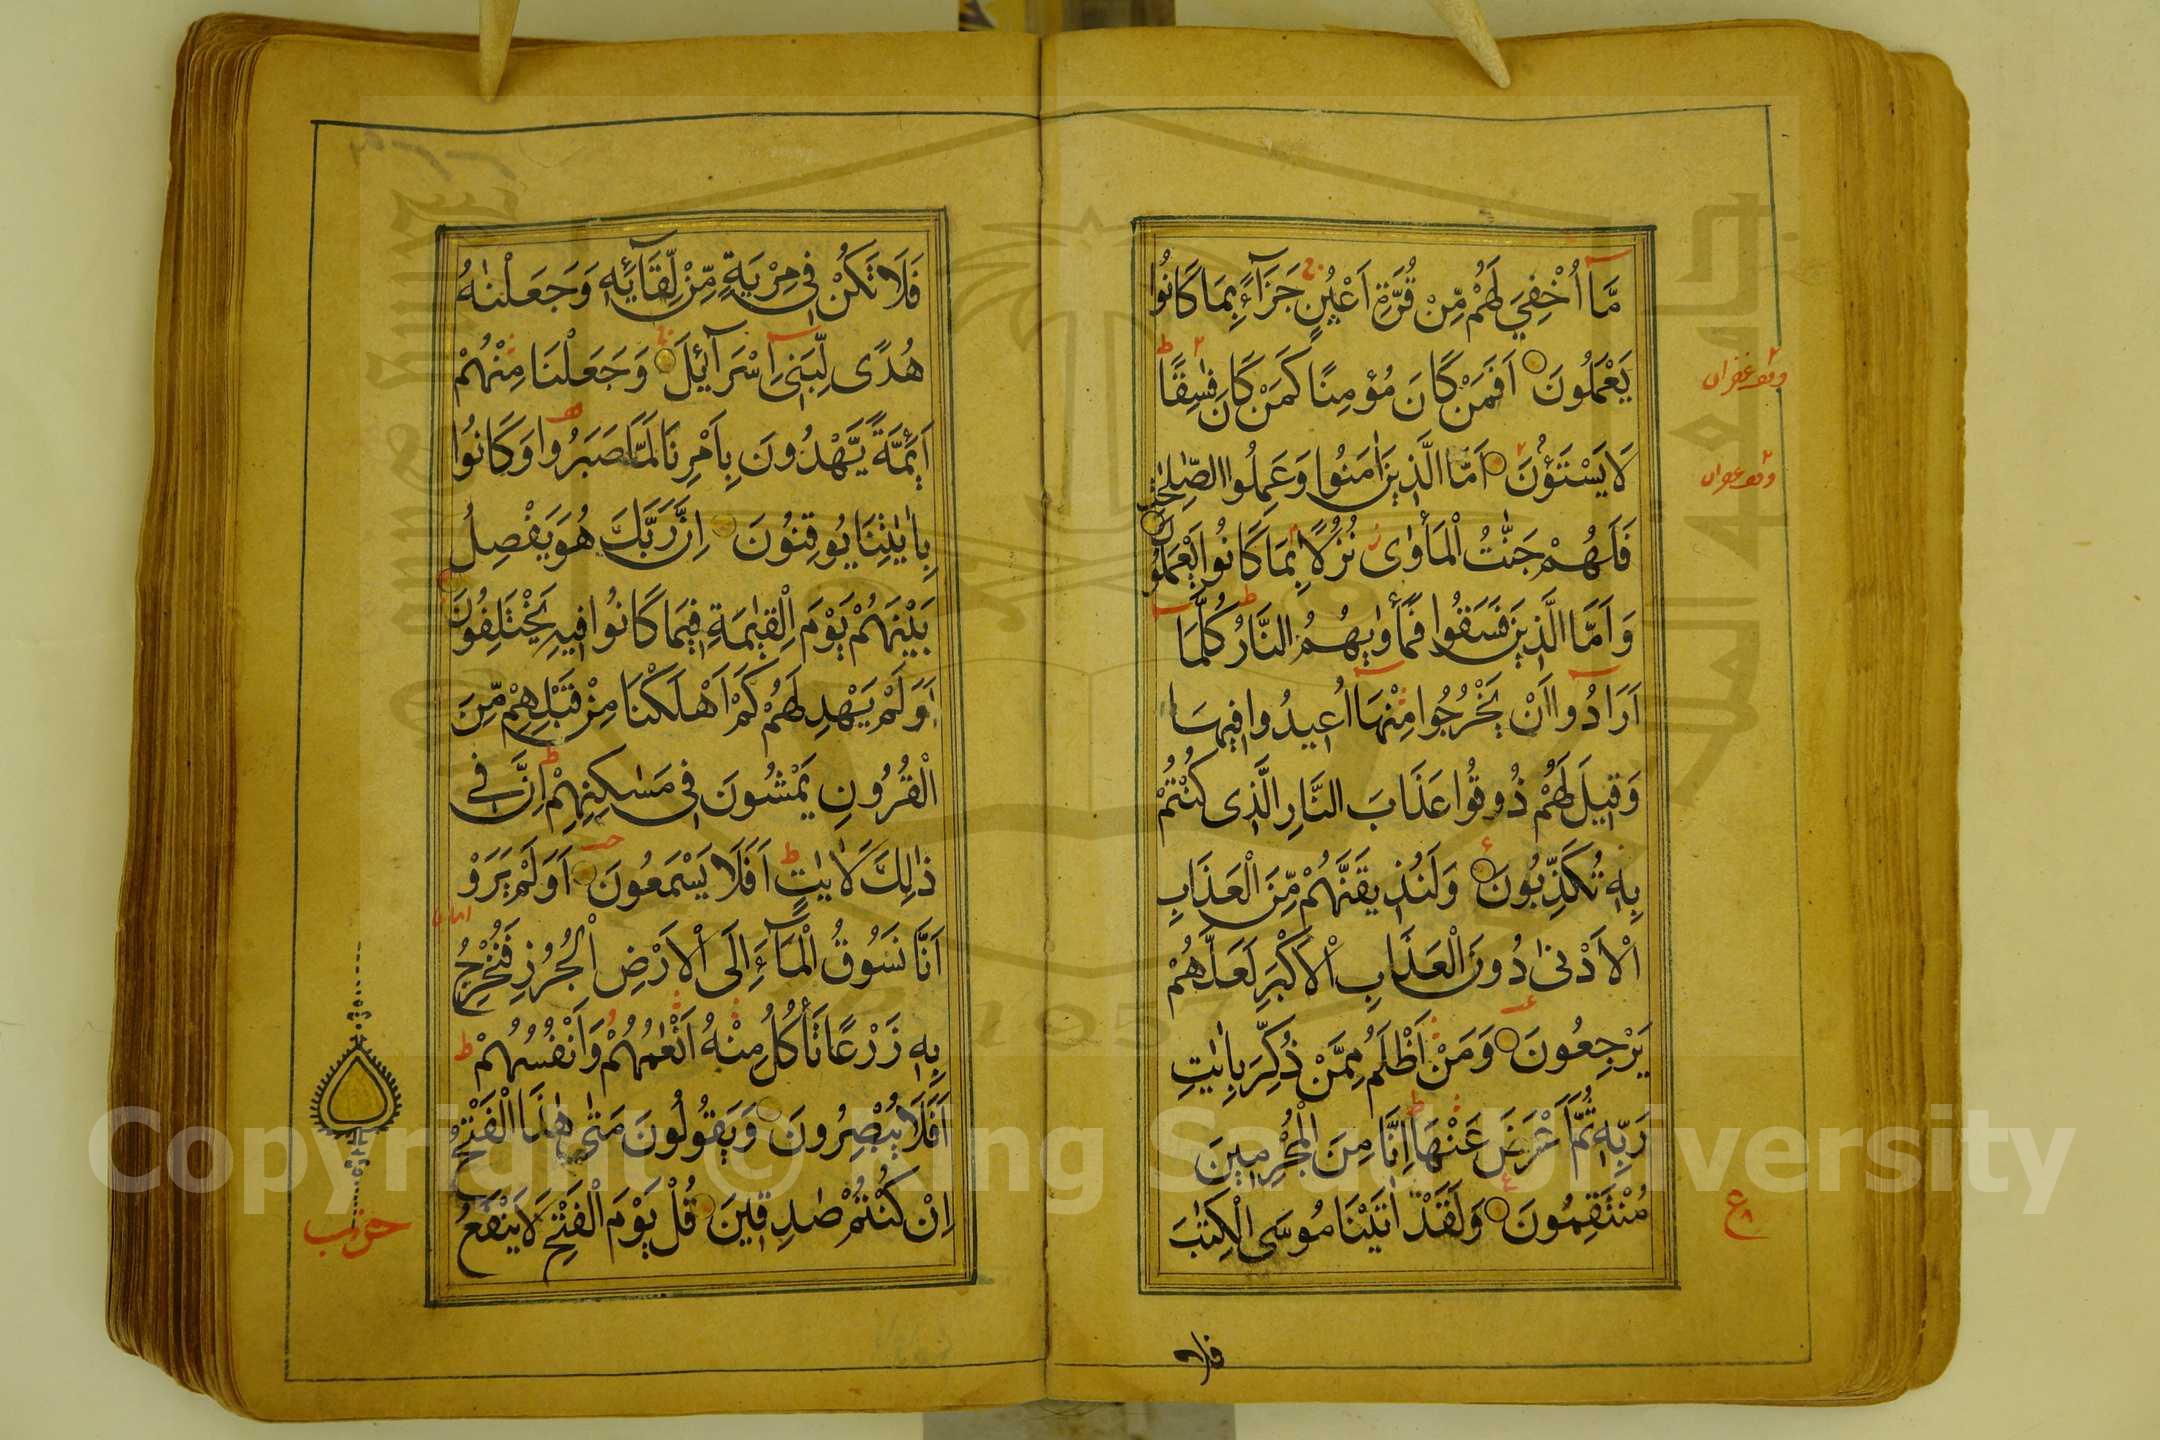 مَّا اُخْفِيَ لَهُمْ مِّنْ قُرَّةِ اَعْيُنٍ جَزَآءً بِمَا كَانُوْا
يَعْمَلُونَ اَفَمَنْ كَانَ مُؤْمِنًا كَمَنْ كَانَ فٰسِقًا
لَا يَسْتَوٗنَ اَمَّا الَّذِينَ اٰمَنُوا وَعَمِلُوا الصّٰلِحٰتِ
فَلَهُمْ جَنّٰتُ الْمَأْوٰى نُزُلًا بِمَا كَانُوا يَعْمَلُونَ
وَاَمَّا الَّذِينَ فَسَقُوا فَمَأْوٰيهُمُ النَّارُ كُلَّمَا
اَرَادُوا اَنْ يَخْرُجُوا مِنْهَا اُعِيدُوا فِيهَا
وَقِيلَ لَهُمْ ذُوقُوا عَذَابَ النَّارِ الَّذِى كُنْتُمْ
بِهٖ تُكَذِّبُونَ وَلَنُذِيقَنَّهُمْ مِّنَ الْعَذَابِ
الْاَدْنٰى دُونَ الْعَذَابِ الْاَكْبَرِ لَعَلَّهُمْ
يَرْجِعُونَ وَمَنْ اَظْلَمُ مِمَّنْ ذُكِّرَ بِاٰيٰتِ
رَبِّهٖ ثُمَّ اَعْرَضَ عَنْهَا اِنَّا مِنَ الْمُجْرِمِينَ
مُنْتَقِمُونَ وَلَقَدْ اٰتَيْنَا مُوسَى الْكِتٰبَ
وقف غفران
وقف غفران
ع
فلا
فَلَا تَكُنْ فِى مِرْيَةٍ مِّنْ لِّقَآئِهٖ وَجَعَلْنٰهُ
هُدًى لِّبَنِىٓ اِسْرَآئِيلَ وَجَعَلْنَا مِنْهُمْ
اَئِمَّةً يَّهْدُونَ بِاَمْرِنَا لَمَّا صَبَرُوا وَكَانُوا
بِاٰيٰتِنَا يُوقِنُونَ اِنَّ رَبَّكَ هُوَ يَفْصِلُ
بَيْنَهُمْ يَوْمَ الْقِيٰمَةِ فِيمَا كَانُوا فِيهِ يَخْتَلِفُونَ
اَوَلَمْ يَهْدِ لَهُمْ كَمْ اَهْلَكْنَا مِنْ قَبْلِهِمْ مِّنَ
الْقُرُونِ يَمْشُونَ فِى مَسٰكِنِهِمْ اِنَّ فِى
ذٰلِكَ لَاٰيٰتٍ اَفَلَا يَسْمَعُونَ اَوَلَمْ يَرَوْا
اَنَّا نَسُوقُ الْمَآءَ اِلَى الْاَرْضِ الْجُرُزِ فَنُخْرِجُ
بِهٖ زَرْعًا تَأْكُلُ مِنْهُ اَنْعٰمُهُمْ وَاَنْفُسُهُمْ
اَفَلَا يُبْصِرُونَ وَيَقُولُونَ مَتٰى هٰذَا الْفَتْحُ
اِنْ كُنْتُمْ صٰدِقِينَ قُلْ يَوْمَ الْفَتْحِ لَا يَنْفَعُ
حزب
Copyright © King Saud University
1957